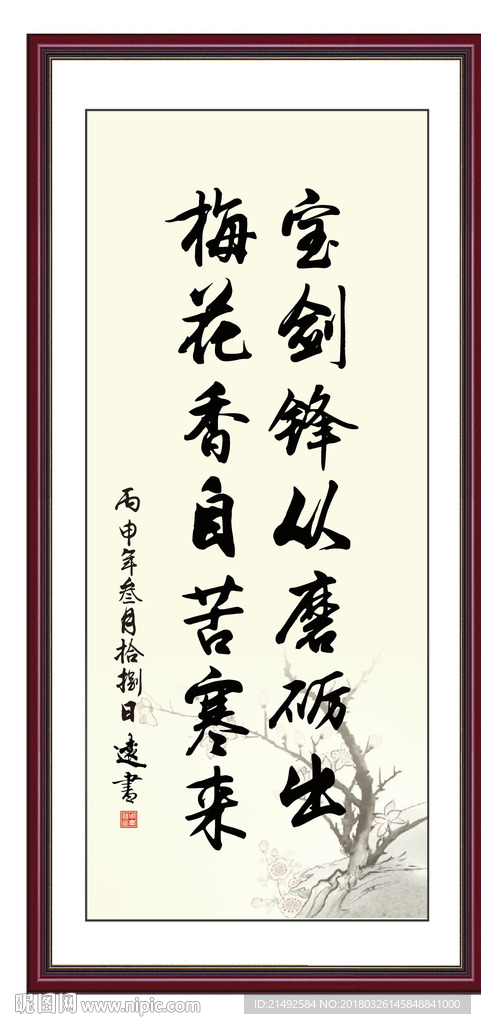 宝剑锋从磨砺出
梅花香自苦寒来
丙申年叁月拾捌日 远書
昵图网 www.nipic.com
ID:21492584 NO:20180326145848841000